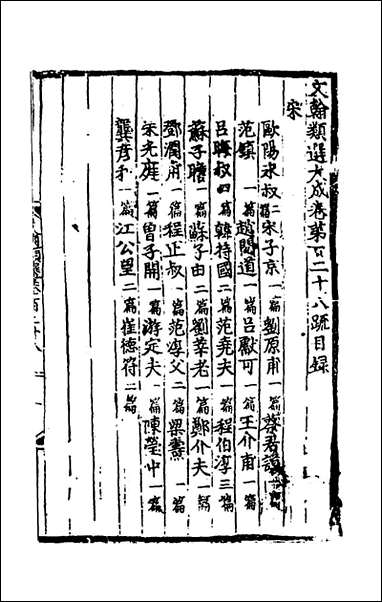 文翰類選大成卷第一百二十八疏目録
宋
歐陽永叔二篇 宋子京一篇 劉原甫一篇 蔡君謨一篇
范鎮一篇 趙閱道一篇 吕獻可一篇 王介甫一篇
吕晦叔四篇 韓持國二篇 范堯夫一篇 程伯淳三篇
蘇子瞻一篇 蘇子由二篇 劉莘老一篇 鄭介夫一篇
鄧潤甫一篇 程正叔一篇 范淳父二篇 梁燾一篇
朱光庭一篇 曾子開一篇 游定夫一篇 陳瑩中一篇
龔彦和一篇 江公望二篇 崔德符二篇